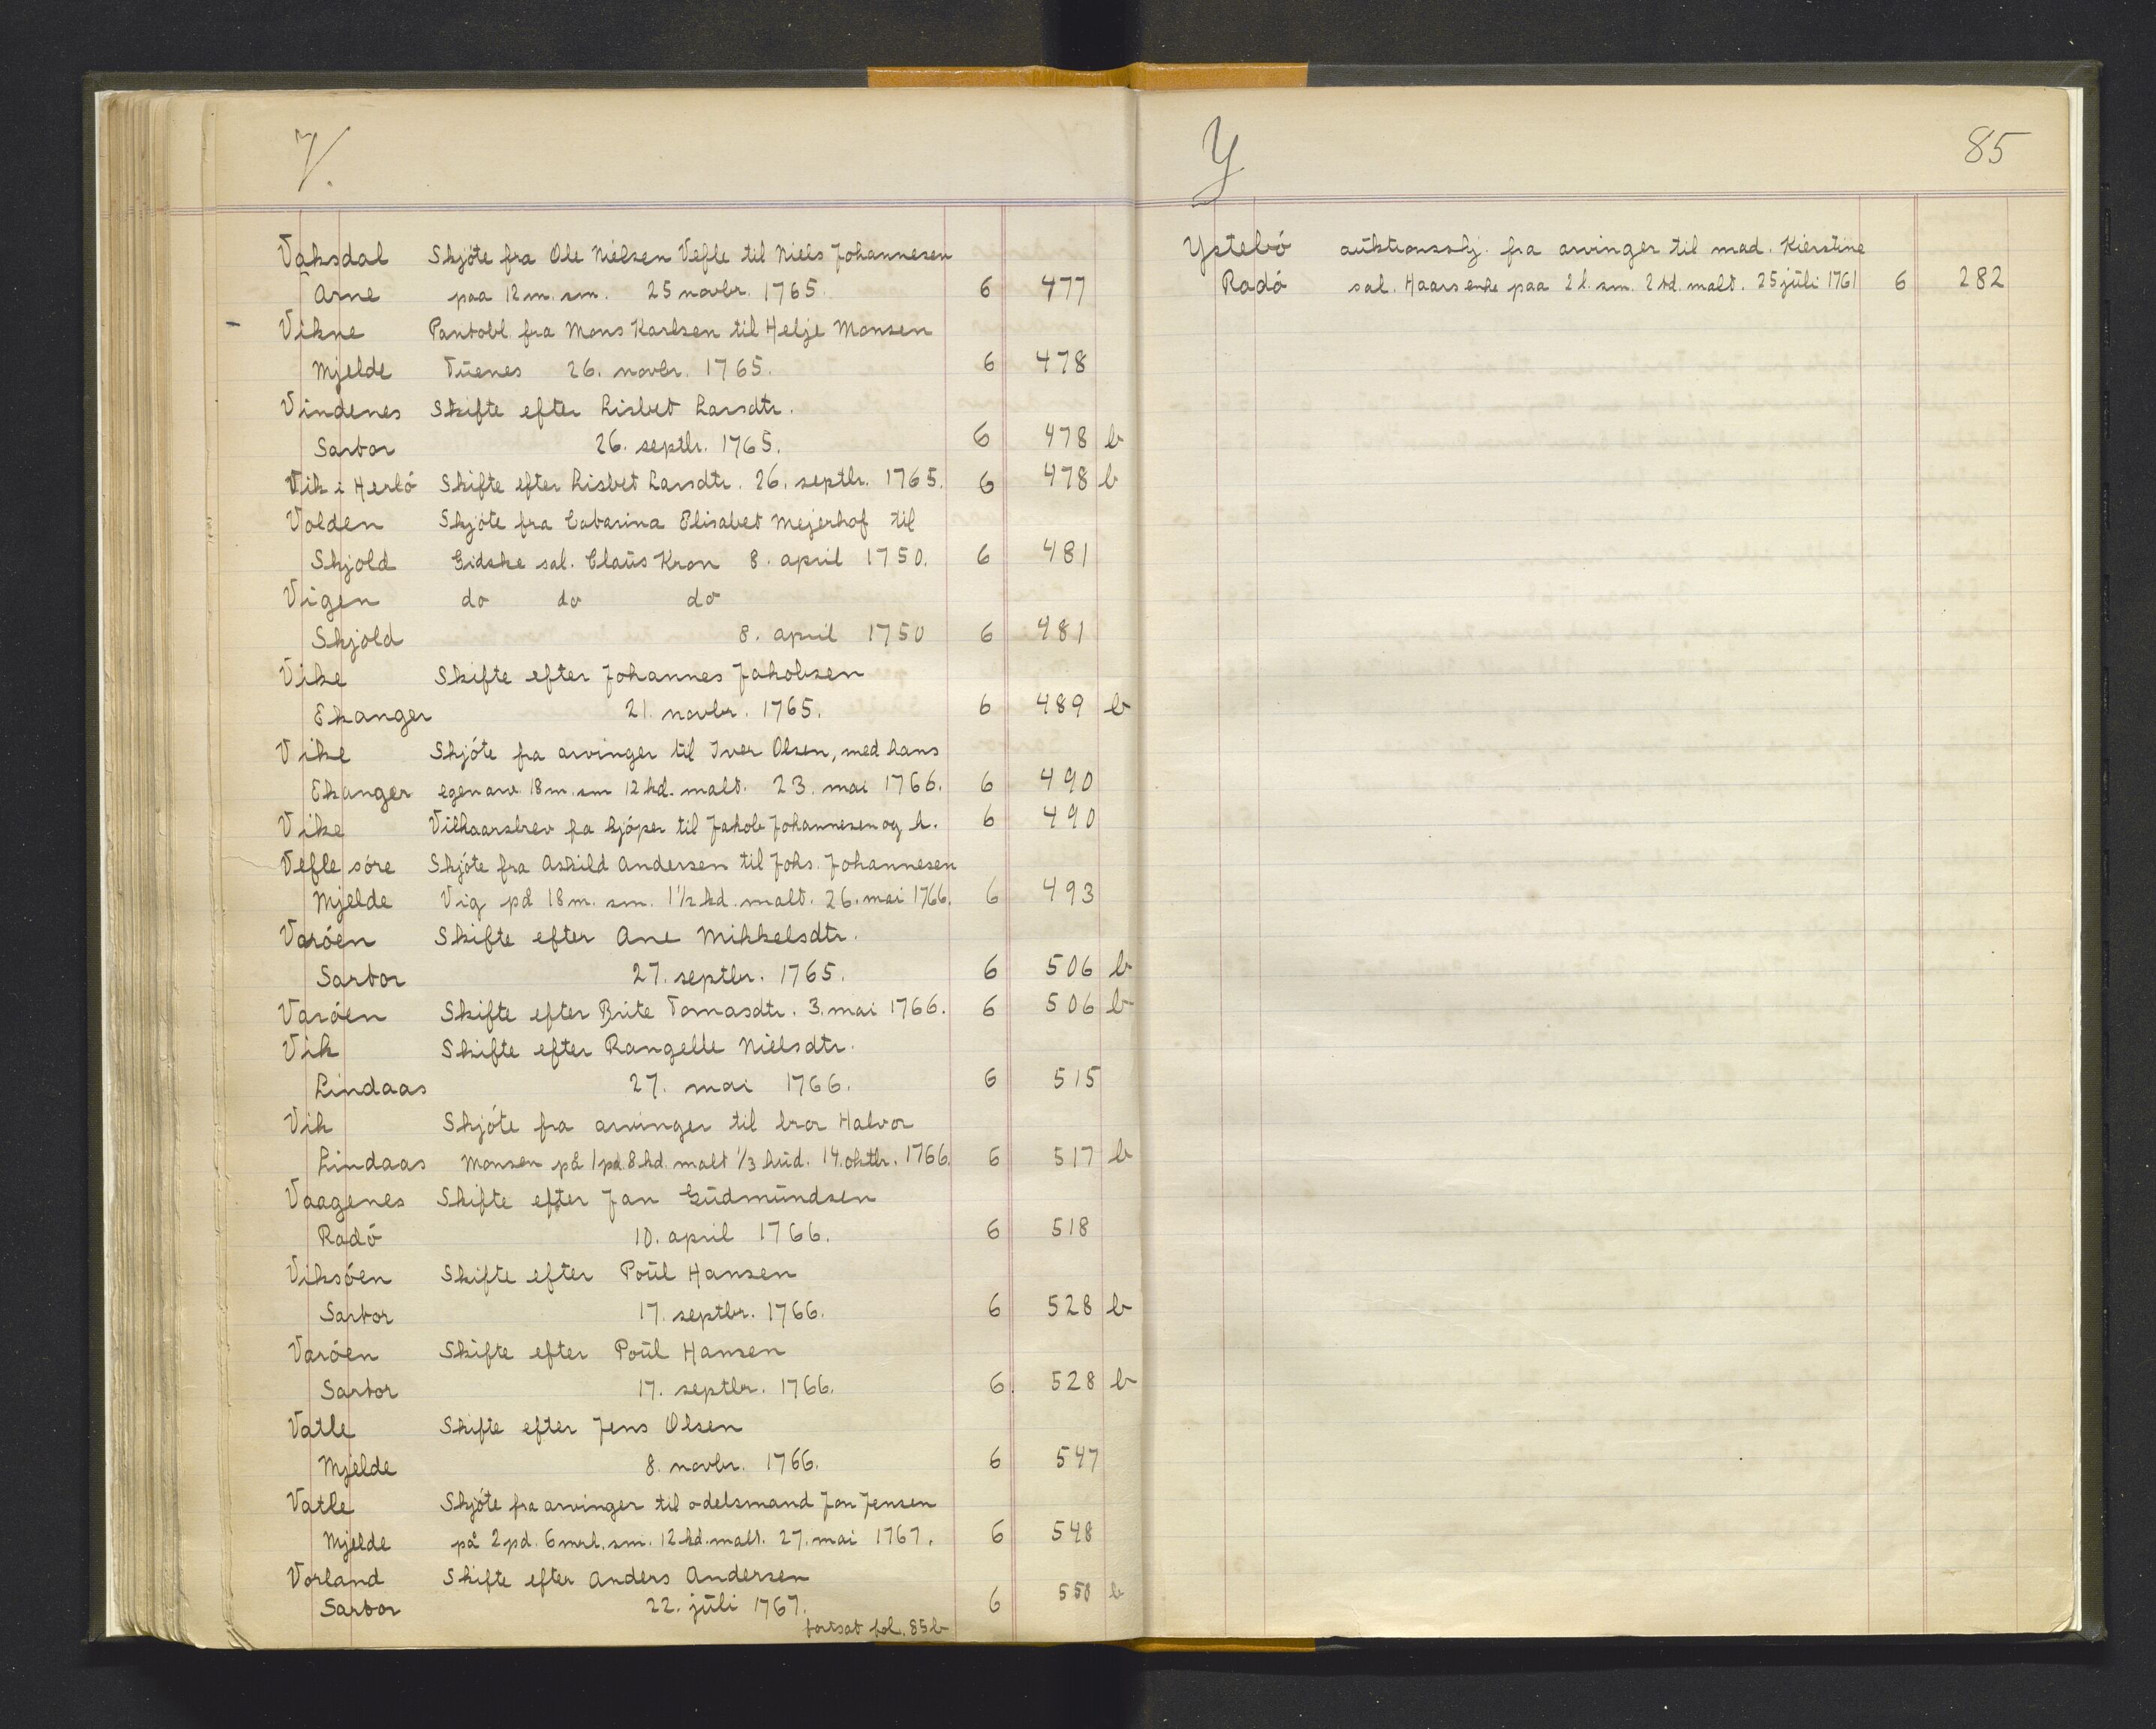 V.
Vaksdal Skjöte fra Ole Nielsen Vefle til Niels Johannesen
Arne paa 12 m. sm. 25 novbr. 1765. 6 477
Vikne Pantobl. fra Mons Karlsen til Helje Monsen
Mjelde Tuenes 26. novbr. 1765. 6 478
Vindenes Skifte efter Lisbet Larsdtr.
Sartor 26. septbr. 1765. 6 478 b
Vik i Herlö Skifte efter Lisbet Larsdtr. 26. septbr. 1765. 6 478 b
Volden Skjöte fra Catarina Elisabet Mejerhof til
Skjold Gidske sal. Claus Kron 8. april 1750. 6 481
Vigen do do do
Skjold 8. april 1750 6 481
Vike Skifte efter Johannes Jakobsen
Ekanger 21. novbr. 1765. 6 489 b
Vike Skjöte fra arvinger til Iver Olsen, med hans
Ekanger egen arv. 18 m. sm 12 kd. malt. 23. mai 1766. 6 490
Vike Vilkaarsbrev fra kjöper til Jakob Johannesen og h. 6 490
Vefle söre Skjöte fra Askild Andersen til Johs. Johannesen
Mjelde Vig på 18 m. sm. 1 1/2 kd. malt. 26. mai 1766. 6 493
Varöen Skifte efter Ane Mikkelsdtr.
Sartor 27. septbr. 1765. 6 506 b
Varöen Skifte efter Brite Tomasdtr. 3. mai 1766. 6 506 b
Vik Skifte efter Rangelle Nielsdtr.
Lindaas 27. mai 1766. 6 515
Vik Skjöte fra arvinger til bror Halvor
Lindaas Monsen på 1 pd. 8 kd. malt 1/3 hud. 14. oktbr. 1766. 6 517 b
Vaagenes Skifte efter Jan Gudmundsen
Radö 10. april 1766. 6 518
Viksöen Skifte efter Poul Hansen
Sartor 17. septbr. 1766. 6 528 b
Varöen Skifte efter Poul Hansen
Sartor 17. septbr. 1766. 6. 528 b
Vatle Skifte efter Jens Olsen
Mjelde 8. novbr. 1766. 6 547
Vatle Skjöte fra arvinger til odelsmand Jon Jensen
Mjelde på 2 pd. 6 mrk. sm. 12 kd. malt. 27. mai 1767. 6 548
Vorland Skifte efter Anders Andersen
Sartor 22. juli 1767. 6 558 b
fortsat fol. 85 b
Y 85
Ystebö auktionsskj. fra arvinger til mad. Kierstine
Radö sal. Haars enke paa 2 l. sm. 2 td. malt. 25 juli 1761 6 282